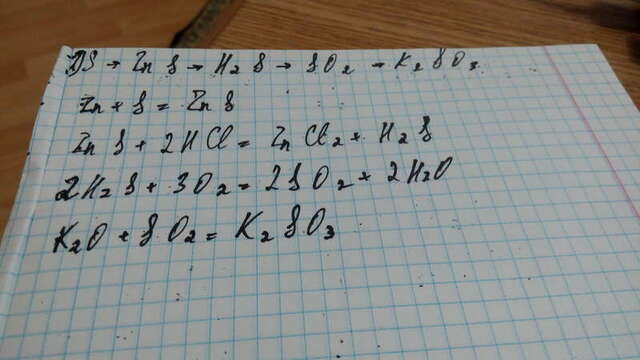 1) S → ZnS → H2S → SO2 → K2SO3
Zn + S = ZnS
ZnS + 2HCl = ZnCl2 + H2S
2H2S + 3O2 = 2SO2 + 2H2O
K2O + SO2 = K2SO3